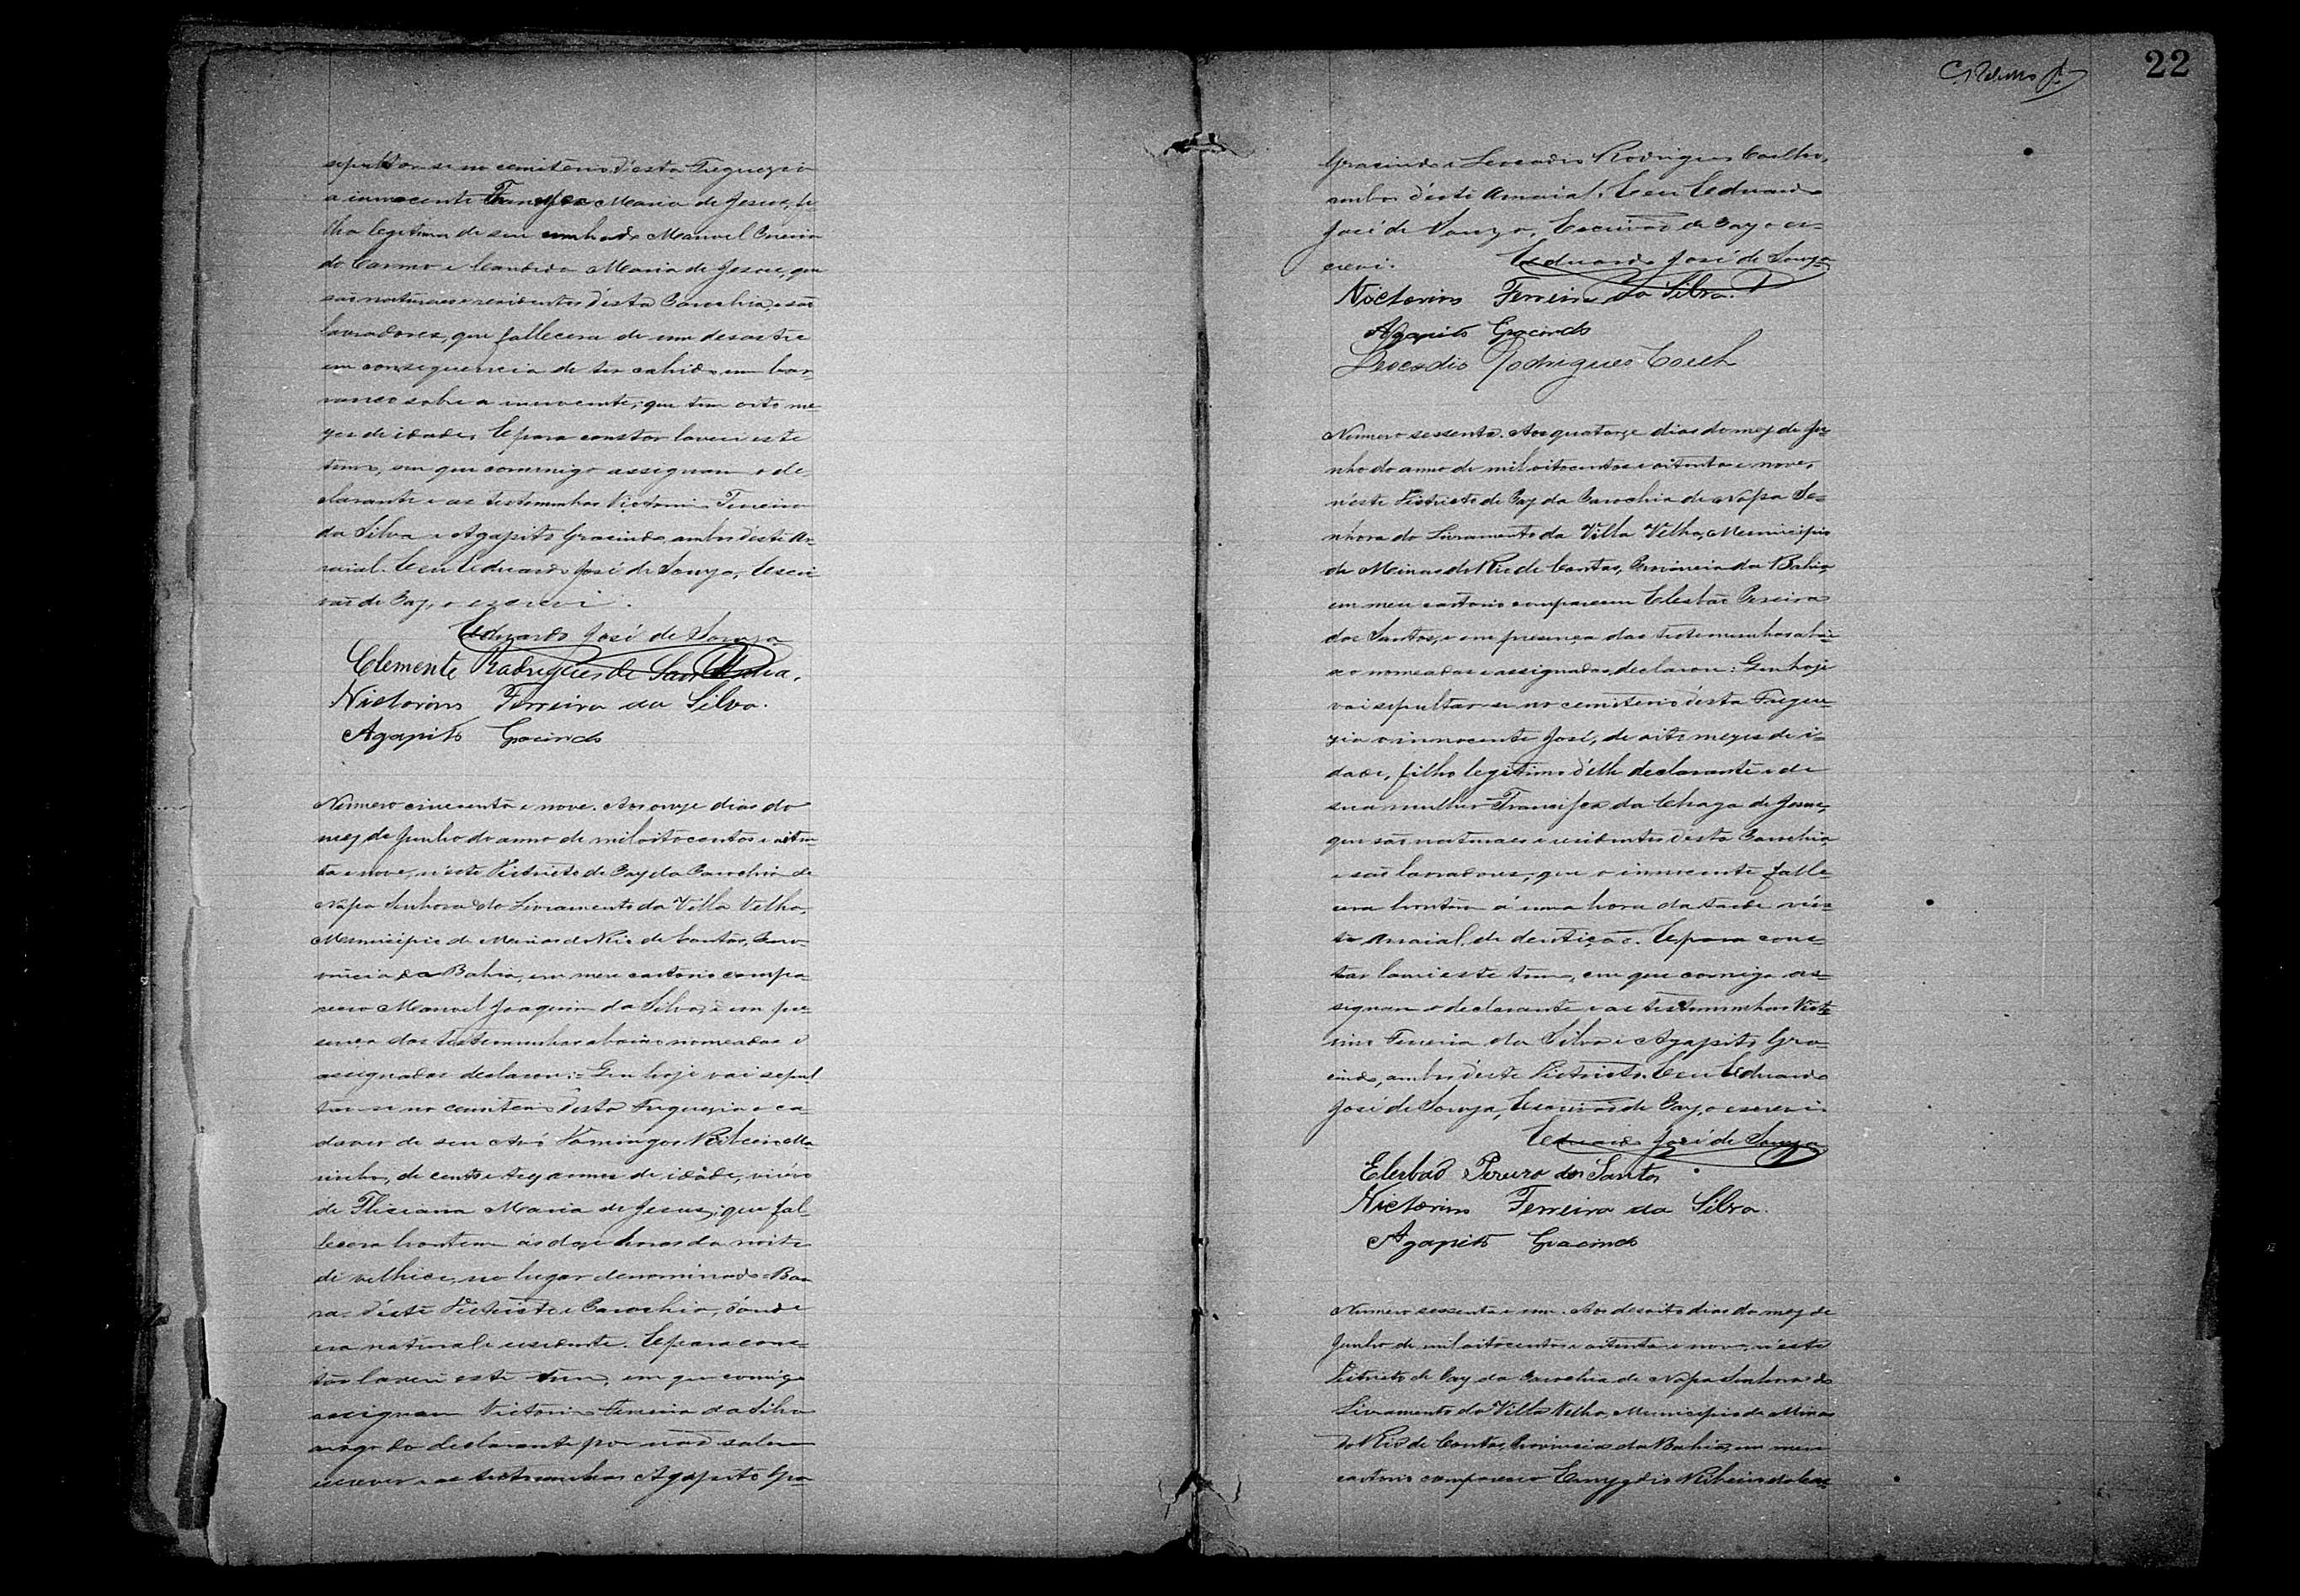 sepultar se no cemiterio d'esta Freguezia
a innocente Francisca Maria de Jesus, fi-
lha legitima de seu cunhado Manoel Pereira
do Carmo e Candida Maria de Jesus, que
são naturaes e residentes d'esta Parochia, e são
lavradores, que fallecera de um desastre
em consequencia de ter cahido um bar-
ranco sobre a innocente, que tem oito me-
zes de idade. E para constar lavrei este
termo, em que commigo assignam o de-
clarante e as testemunhas Victorino Ferreira
da Silva e Agapito Gracindo, ambos d'este Ar-
raial. E eu Eduardo José de Souza, Escri-
vão de Paz, o escrevi.
Eduardo José de Souza
Clemente Rodrigues de
Victorino Ferreira da Silva.
Agapito Gracindo
Numero cincoenta e nove. Aos onze dias do
mez de Junho do anno de mil oitocentos e oiten-
ta e nove, n'este Districto de Paz da Parochia de
Nossa Senhora do Livramento da Villa Velha,
Municipio de Minas do Rio de Contas, Pro-
vincia da Bahia, em meu cartorio compa-
receo Manoel Joaquim da Silva, e em pre-
sença das testemunhas abaixo nomeadas e
assignadas declarou: Que hoje vai sepul-
tar se no cemiterio desta Freguezia o ca-
daver de seu Avô Domingos Ribeiro Ma-
rinho, de cento e tres annos de idade, viúvo
de Fliciana Maria de Jesus; que fal-
lecera hontem ás doze horas da noite
de velhice, no lugar denominado Bar-
ra d'este Districto e Parochia, d'onde
era natural e residente. E para cons-
tar lavrei este termo, em que comigo
assignam Victorino Ferreira da Silva
arogo do declarante por não saber
escrever e as testemunhas Agapito Gra-
22
Gracindo e Leocadio Rodrigues Coelho,
ambos d'este Arraial. E eu Eduardo
José de Souza, Escrivão de Paz o es-
crevi.
Eduardo José de Souza
Victorino Ferreira da Silva.
Agapito Gracindo
Leocadio Rodrigues Coelh
Numero sessenta. Aos quatorze dias do mez de Ju-
nho do anno de mil oitocentos e oitenta e nove,
n'este Districto de Paz da Parochia de Nossa Se-
nhora do Livramento da Villa Velha, Municipio
de Minas do Rio de Contas, Provincia da Bahia,
em meu cartorio compareceu Elesbão Pereira
dos Santos, e em presença das testemunhas abai-
xo nomeadas e assignadas, declarou: Que hoje
vai sepultar se no cemiterio d'esta Fregue-
zia o innocente José, de oito mezes de i-
dade, filho legitimo d'elle declarante e de
sua mulher Francisca da Chaga de Jesus,
que são naturaes e residentes d'esta Parochia
e são lavradores, que o innocente falle-
cera hontem á uma hora da tarde n'es-
te Arraial, de dentição. E para cons-
tar lavrei este termo, em que comigo as-
signam o declarante e as testemunhas Victo-
rino Ferreira da Silva e Agapito Gra-
cindo, ambos d'este Districto. E eu Eduardo
José de Souza, Escrivão de Paz, o escrevi.
Eduardo José de Souza
Elesbão Pereira dos Santos
Victorino Ferreira da Silva.
Agapito Gracindo
Numero sessenta e um. Aos desoito dias do mez de
Junho de mil oitocentos e oitenta e nove, n'este
Districto de Paz da Parochia de Nossa Senhora do
Livramento da Villa Velha, Municipio de Minas
do Rio de Contas, Provincia da Bahia, em meu
cartorio compareceo Emygdio Ribeiro